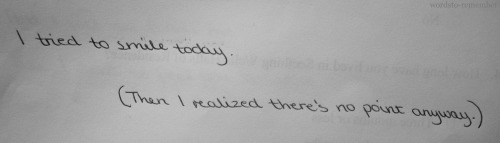 I tried to smile today.
(Then I realized there's no point anyway.)